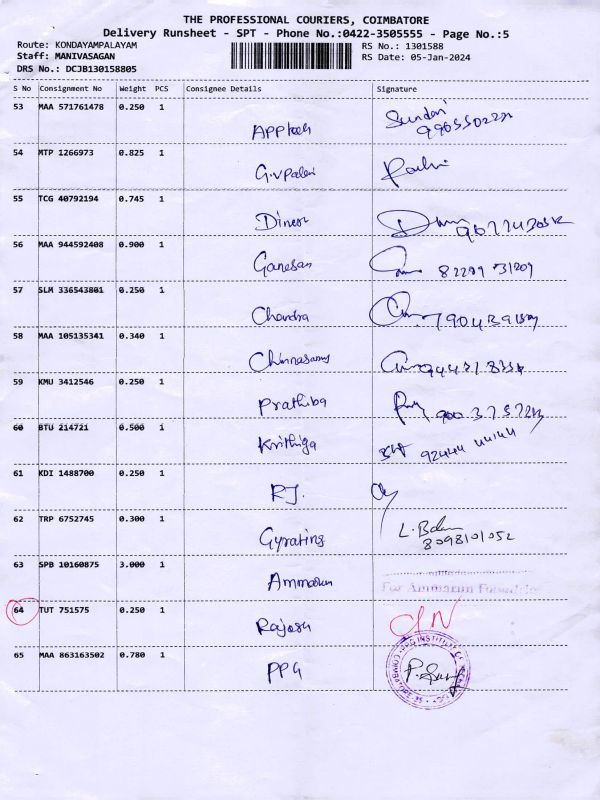 THE PROFESSIONAL COURIERS, COIMBATORE
Delivery Runsheet - SPT - Phone No.:0422-3505555 - Page No.:5
Route: KONDAYAMPALAYAM RS No.: 1301588
Staff: MANIVASAGAN RS Date: 05-Jan-2024
DRS No.: DCJB130158805
S No Consignment No Weight PCS Consignee Details Signature
53 MAA 571761478 0.250 1
Sundari
54 MTP 1266973 0.825 1
55 TCG 40792194 0.745 1
Dinesh
56 MAA 944592408 0.900 1
Ganesan 82209 31209
57 SLM 336543801 0.250 1
Chandra
58 MAA 105135341 0.340 1
Chinnasamy
59 KMU 3412546 0.250 1
Prathiba
60 BTU 214721 0.500 1
Krithiga 92444 44144
61 KDI 1488700 0.250 1
RJ.
62 TRP 6752745 0.300 1
Gyrating 8098101052
63 SPB 10160875 3.000 1
Ammarun For Ammarun
64 TUT 751575 0.250 1
65 MAA 863163502 0.780 1
PPG